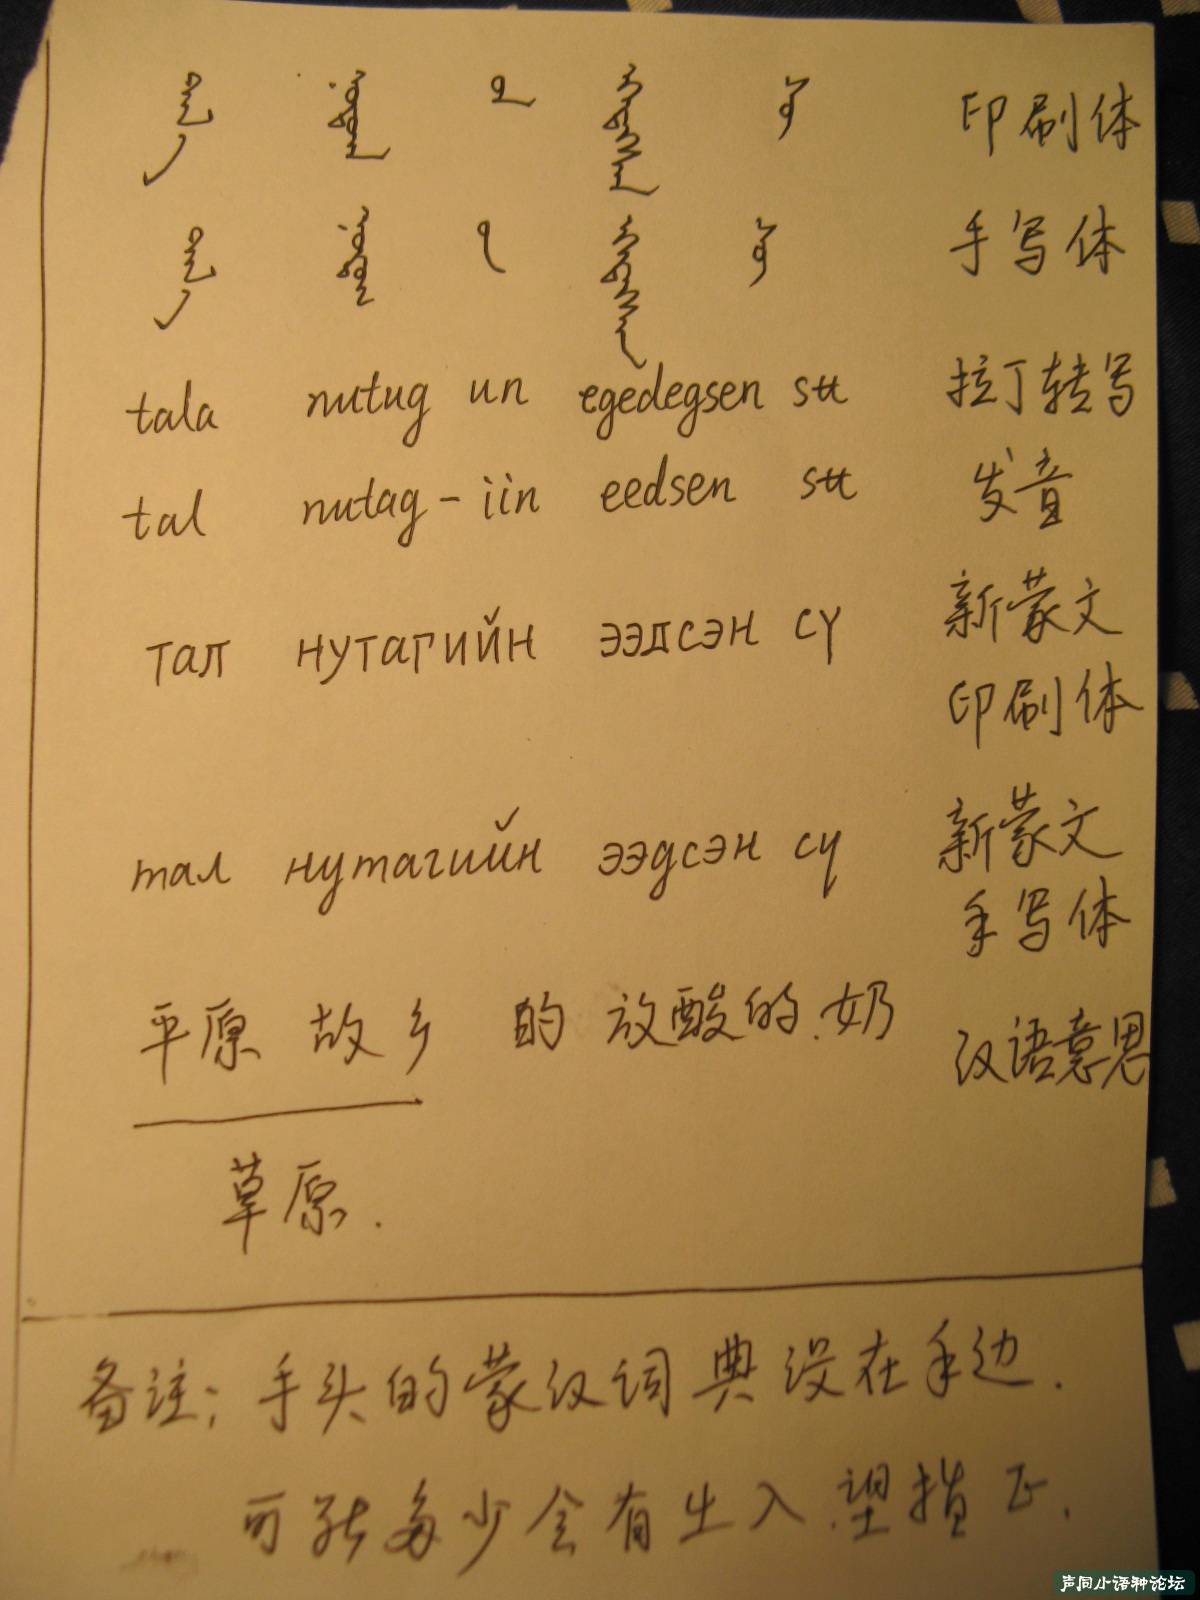 ᠲᠠᠯᠠ ᠨᠤᠲᠤᠭ ᠤᠨ ᠡᠭᠡᠳᠡᠭᠰᠡᠨ ᠰᠦ 印刷体
ᠲᠠᠯᠠ ᠨᠤᠲᠤᠭ ᠤᠨ ᠡᠭᠡᠳᠡᠭᠰᠡᠨ ᠰᠦ 手写体
tala nutug un egedegsen sʉ 拉丁转写
tal nutag-iin eedsen sʉ 发音
тал нутагийн ээдсэн сү 新蒙文
印刷体
тал нутагийн ээдсэн сү 新蒙文
手写体
平原 故乡 的 放酸的 奶 汉语意思
草原.
备注: 手头的蒙汉词典没在手边.
可能多少会有出入.望指正.
声同小语种论坛